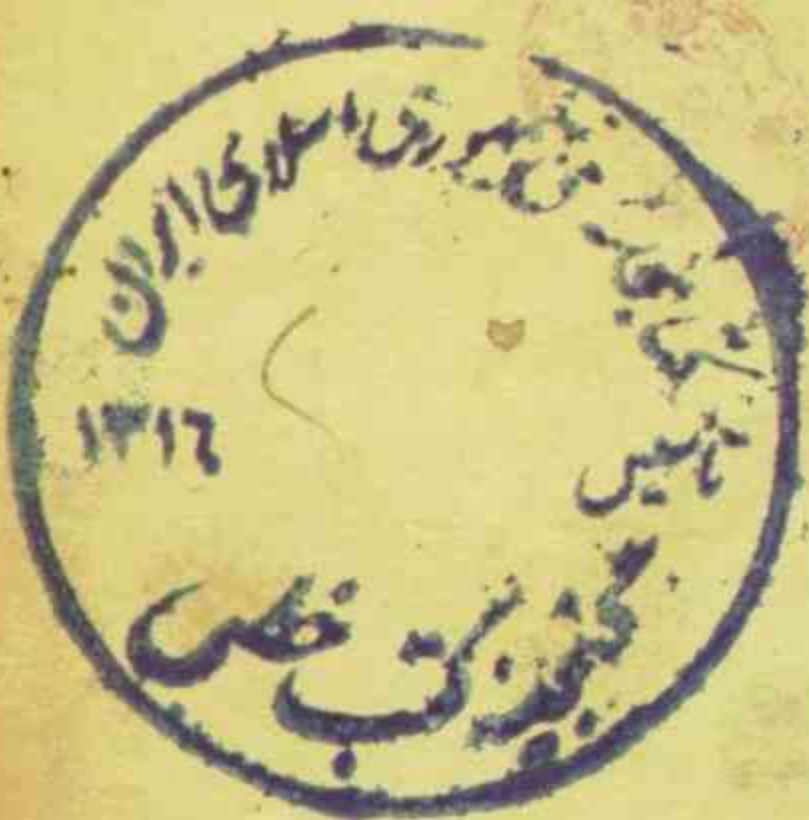 کتابخانه ملی جمهوری اسلامی ایران
تاسیس ۱۳۱٦
گنجینه کتب خطی